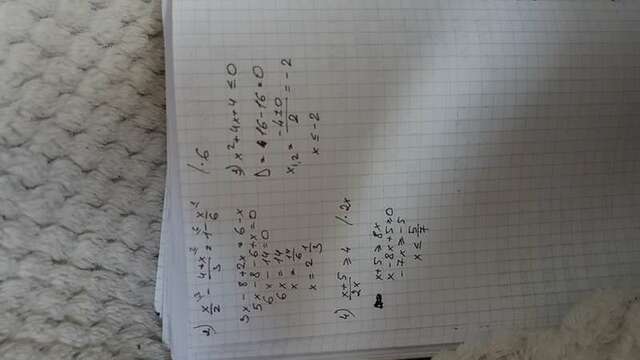 2) x/2 - 4+x/3 = 1 - x/6 /·6
3x - 8 + 2x = 6 - x
5x - 8 - 6 + x = 0
6x - 14 = 0
6x = 14
x = 14/6
x = 2 1/3
3) x² + 4x + 4 ≤ 0
D = 16 - 16 = 0
x₁,₂ = -4±0/2 = -2
x ≤ -2
4) x+5/2x ≥ 4 /·2x
x+5 ≥ 8x
x - 8x + 5 ≥ 0
-7x ≥ -5
x ≤ 5/7